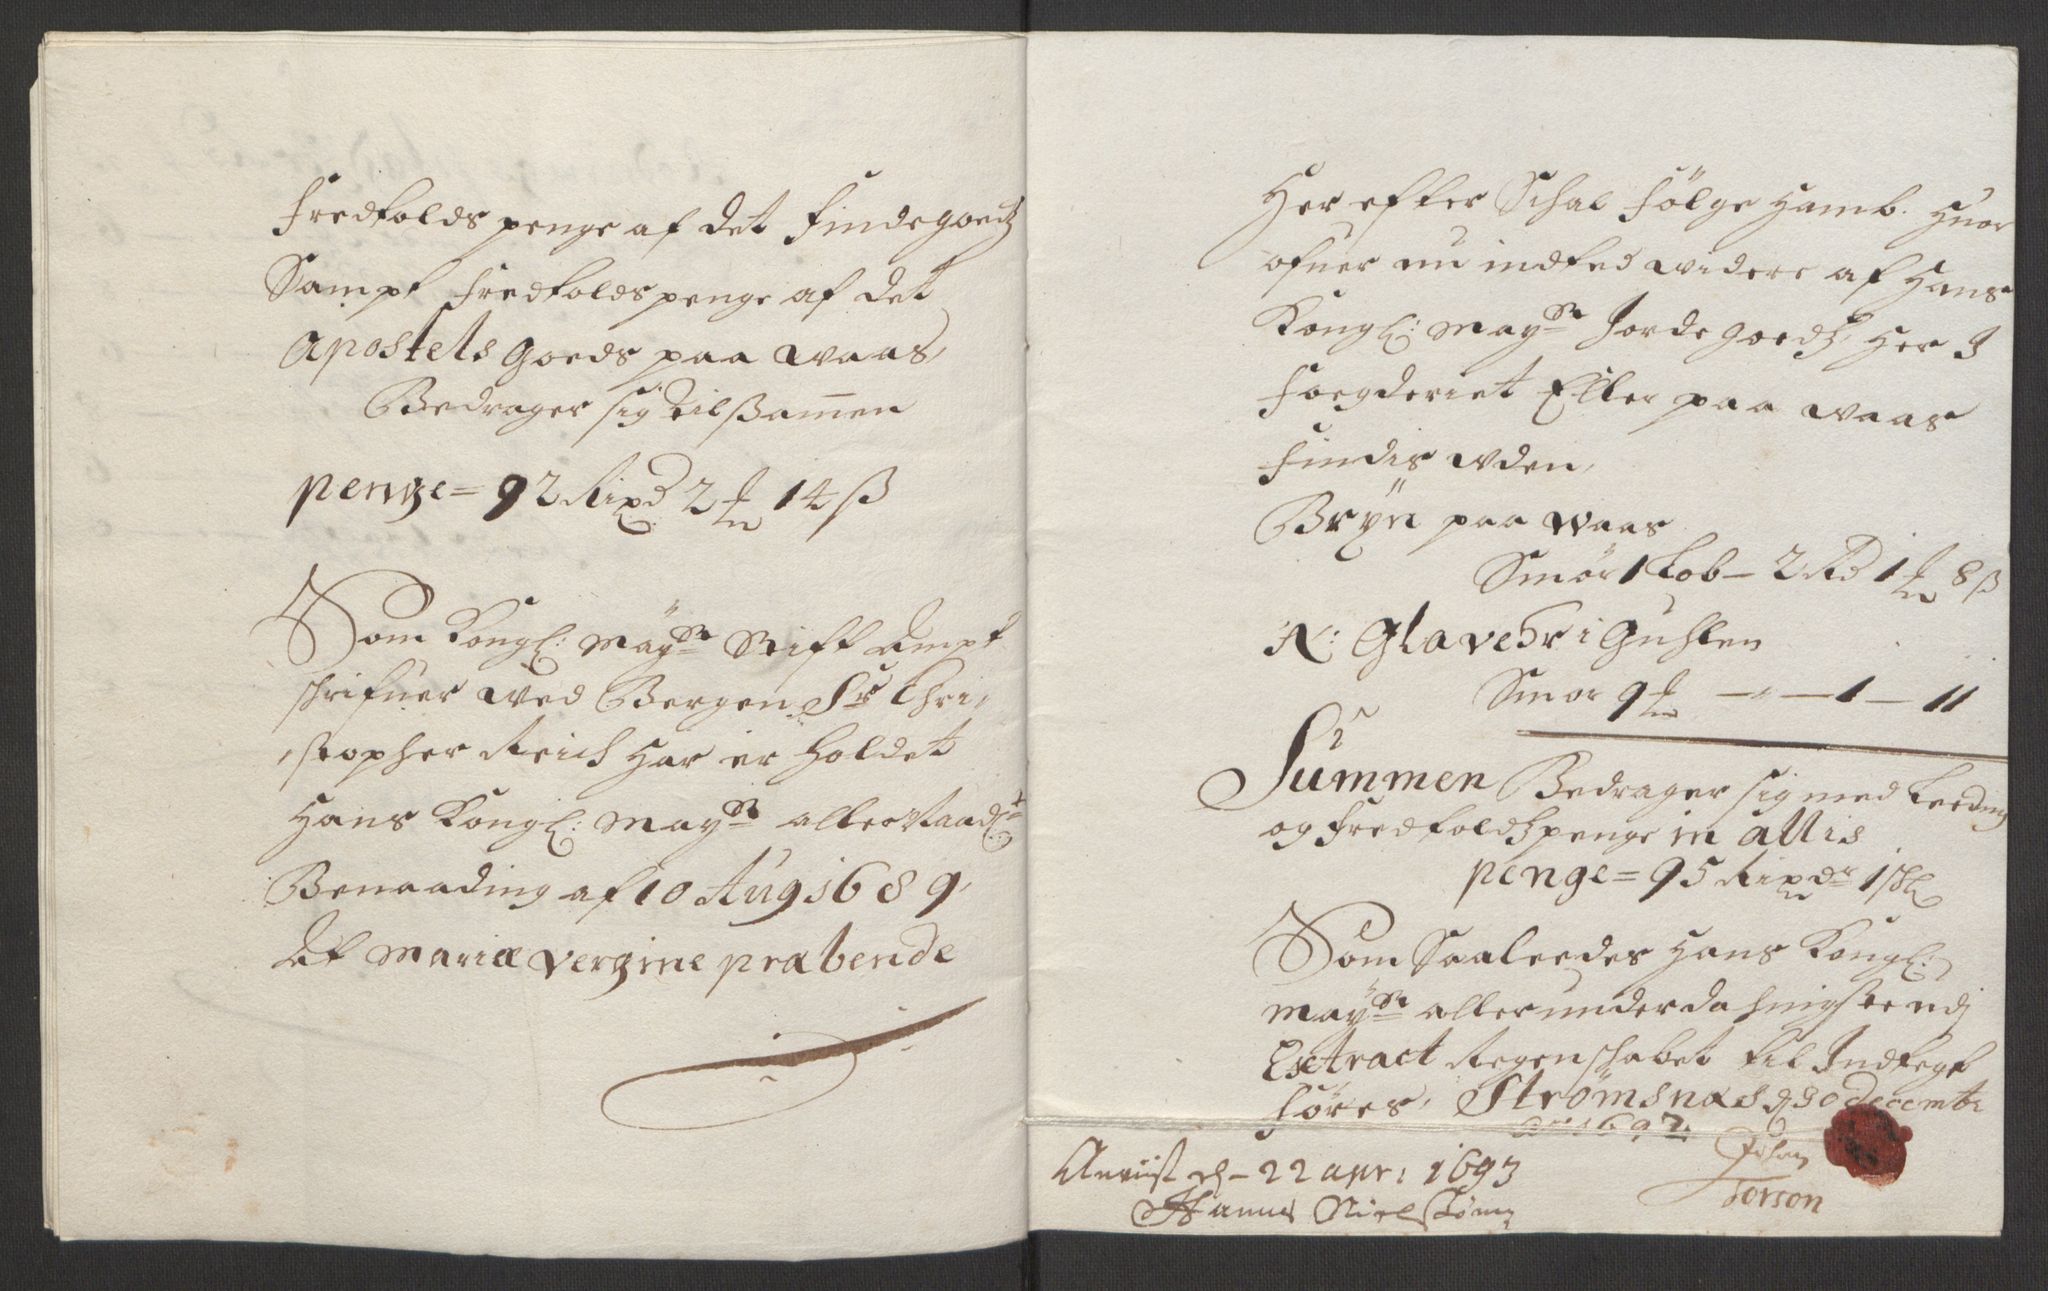 Fredtolds penge af det Findegoedz
Sampt Fredtolds penge af det
Apostels Goeds paa waas,
Bedrager sig tilßamen
penge = 92 Rixd 2 14 ß
Som Kongl: Mayst Stift Ampt
schrifuer wed Bergen Sr Chri,
stopher Reich Har er holdet
Hans Kongl: Mayst allernaadst
Benaading af 10 Aug 1689,
Det Mariæ Vergine præbende
Her efter Schal Fölge Hamb. Huor
ofuer nu indted widere af Hans
Kongl: Mayst Jorde goedz, Her J
Foegderiet Eller paa waas
Findis uden,
Brÿn paa waas
Smör 1 Lob – 2 Rd 1 8 ß
N: Glavehr i Guhlen
Smör 9 – " – 1 – 11
Summen Bedrager sig med Leeding
og Fredtoldz penge in allis
penge = 95 Rixdr 1 sk
Som Saaleedes Hans Kongl:
Mayst allerunderdahnigste udj
Extract Regenschabet til Indtegt
Föres, Strömsnæs d 30 decembr
Ao 1692
Johan
Torson
Anviist d – 22 apr: 1693
Hanns Nielsson